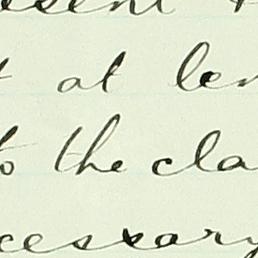 esent
at len
to the cla
cessary